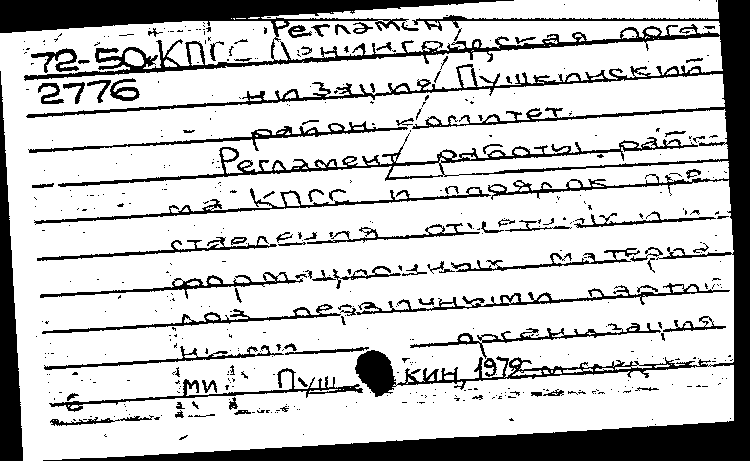 Регламент
72-50 КПСС Ленинградская орга-
2776 низация. Пушкинский
район. комитет.
Регламент работы райко-
ма КПСС и порядок пред-
ставления отчетных и ин-
формационных материа-
лов первичными партий-
ными организация
ми. Пушкин, 1972.
6